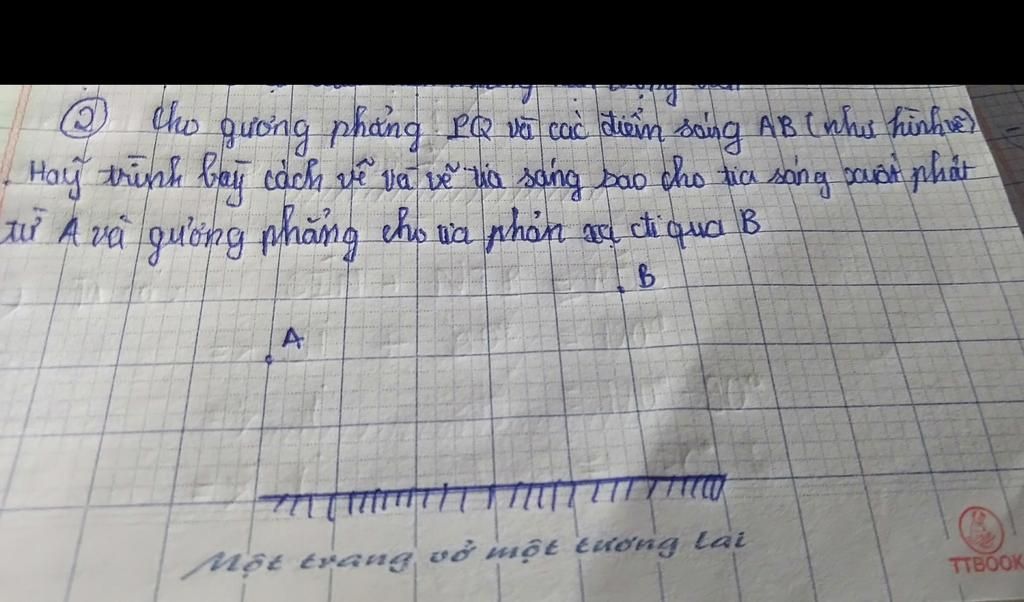 ② Cho gương phẳng PQ và các điểm sáng AB (như hình vẽ)
Hãy trình bày cách vẽ và vẽ tia sáng sao cho tia sáng xuất phát
từ A và gương phẳng cho tia phản xạ đi qua B
B
A
Một trang vở một tương lai
TTBOOK